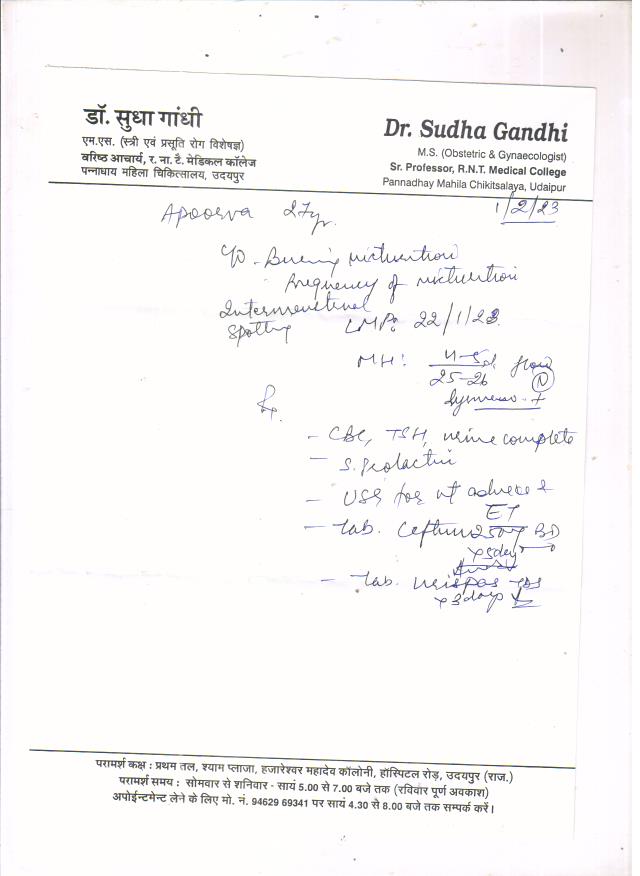 डॉ. सुधा गांधी
एम.एस. (स्त्री एवं प्रसूति रोग विशेषज्ञ)
वरिष्ठ आचार्य, र. ना. टै. मेडिकल कॉलेज
पन्नाधाय महिला चिकित्सालय, उदयपुर
Dr. Sudha Gandhi
M.S. (Obstetric & Gynaecologist)
Sr. Professor, R.N.T. Medical College
Pannadhay Mahila Chikitsalaya, Udaipur
Apoorva 27yr.
1/2/23
c/o - Burning micturition
Frequency of micturition
Intermenstrual
Spotting LMP: 22/1/23
MH: 4-5d flow
25-26 N
Rx.
- CBC, TSH, urine complete
- S. Prolactin
- USG for ut adnexa &
ET
- Tab. Ceftum 250mg BD
x 5day
- Tab. Urispas TDS
x 3days
परामर्श कक्ष : प्रथम तल, श्याम प्लाजा, हजारेश्वर महादेव कॉलोनी, हॉस्पिटल रोड़, उदयपुर (राज.)
परामर्श समय : सोमवार से शनिवार - सायं 5.00 से 7.00 बजे तक (रविवार पूर्ण अवकाश)
अपोईन्टमेन्ट लेने के लिए मो. नं. 94629 69341 पर सायं 4.30 से 8.00 बजे तक सम्पर्क करें।